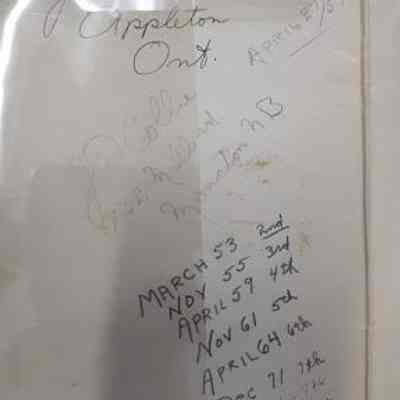 Appleton
Ont.
APRIL 27/5
Moncton NB
MARCH 53 2nd
NOV 55 3rd
APRIL 59 4th
NOV 61 5th
APRIL 64 6th
DEC 71 7th